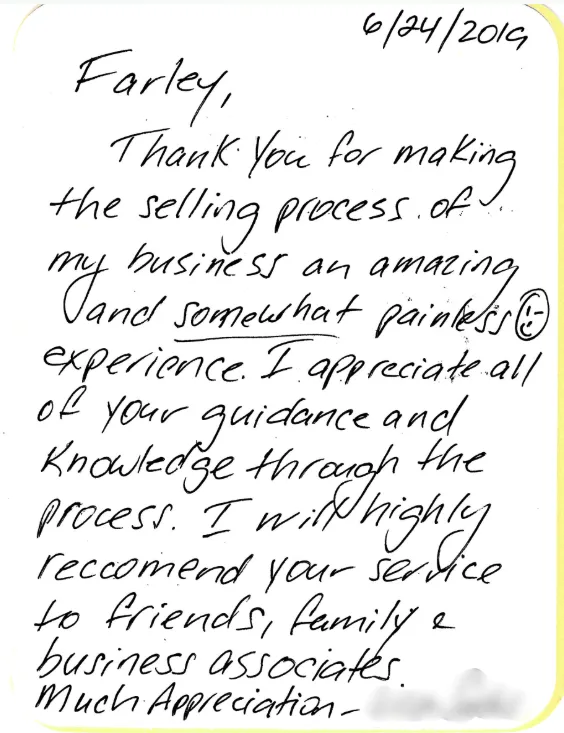 6/24/2019
Farley,
Thank You for making
the selling process of
my business an amazing
and somewhat painless
experience. I appreciate all
of your guidance and
Knowledge through the
process. I will highly
reccomend your service
to friends, family &
business associates.
Much Appreciation -